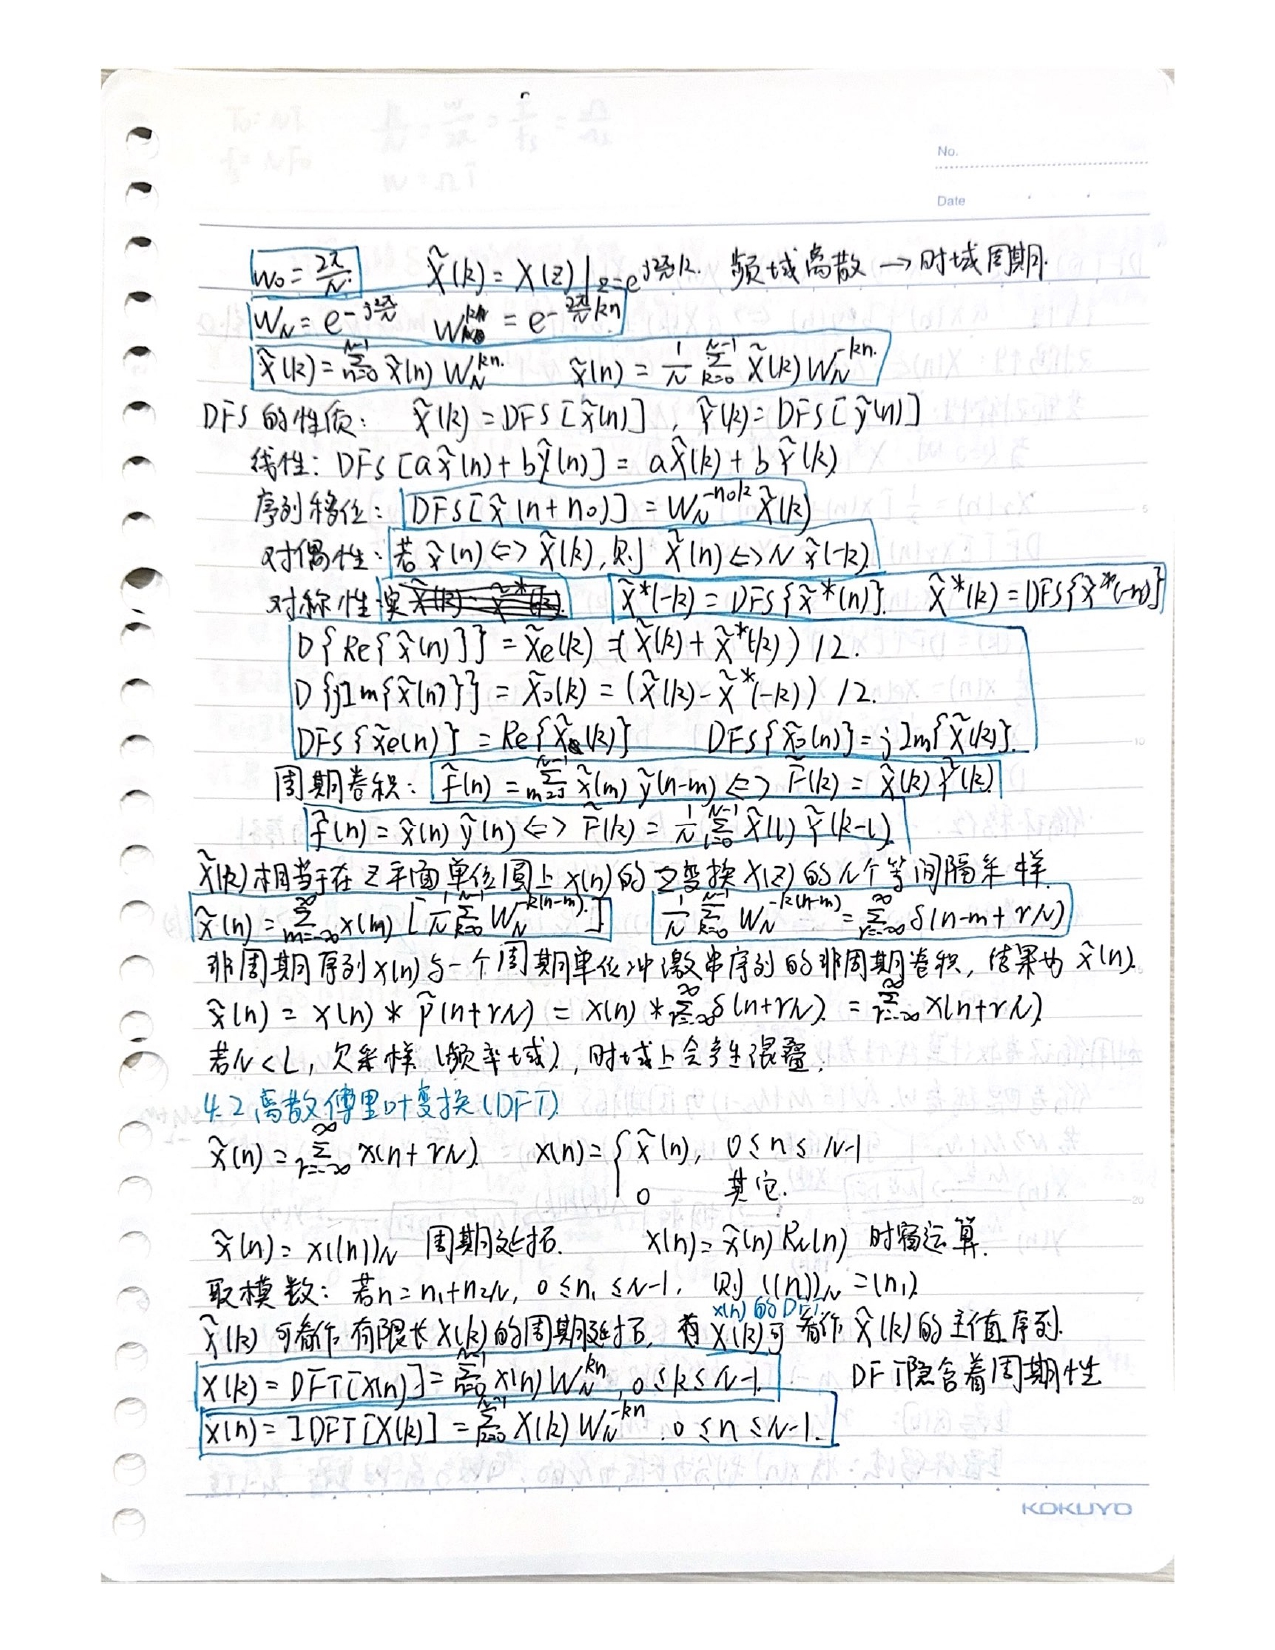 No.
Date
W₀ = 2π/N  X̃(k) = X(z)|z=e^{j2π/N k}. 频域离散 → 时域周期.
W_N = e^{-j2π/N}  W_N^{kn} = e^{-2π/N kn}
X̃(k) = Σ_{n=0}^{N-1} x̃(n) W_N^{kn}.  x̃(n) = 1/N Σ_{k=0}^{N-1} X̃(k) W_N^{-kn}.
DFS的性质: X̃(k) = DFS[x̃(n)], Ỹ(k) = DFS[ỹ(n)]
线性: DFS[ax̃(n)+bỹ(n)] = aX̃(k)+bỸ(k)
序列移位: DFS[x̃(n+n₀)] = W_N^{-n₀k} X̃(k)
对偶性: 若 x̃(n) <=> X̃(k), 则 X̃(n) <=> N x̃(-k)
对称性 X̃*(-k) = DFS{x̃*(n)}. X̃*(k) = DFS{x̃*(-n)}
D{Re{x̃(n)}} = X̃e(k) = (X̃(k)+X̃*(-k)) / 2.
D{jIm{x̃(n)}} = X̃o(k) = (X̃(k)-X̃*(-k)) / 2.
DFS{x̃e(n)} = Re{X̃(k)}  DFS{x̃o(n)} = jIm{X̃(k)}.
周期卷积: f̃(n) = Σ_{m=0}^{N-1} x̃(m) ỹ(n-m) <=> F̃(k) = X̃(k) Ỹ(k)
f̃(n) = x̃(n) ỹ(n) <=> F̃(k) = 1/N Σ_{l=0}^{N-1} X̃(l) Ỹ(k-l).
X̃(k)相当于在Z平面单位圆上x(n)的Z变换X(Z)的N个等间隔采样.
x̃(n) = Σ_{m=-∞}^{∞} x(m) [1/N Σ_{k=0}^{N-1} W_N^{-k(n-m)}.]  1/N Σ_{k=0}^{N-1} W_N^{-k(n-m)} = Σ_{r=-∞}^{∞} δ(n-m+rN)
非周期序列x(n)与一个周期单位冲激串序列的非周期卷积, 结果为 x̃(n).
x̃(n) = x(n) * p̃(n+rN) = x(n) * Σ_{r=-∞}^{∞} δ(n+rN). = Σ_{r=-∞}^{∞} x(n+rN)
若N<L, 欠采样(频率域), 时域上会产生混叠.
4.2 离散傅里叶变换(DFT)
x̃(n) = Σ_{r=-∞}^{∞} x(n+rN)  x(n) = { x̃(n), 0≤n≤N-1
0  其它.
x̃(n) = x((n))_N 周期延拓.  x(n) = x̃(n) R_N(n) 时窗运算.
取模数: 若n = n₁+n₂N, 0≤n₁≤N-1, 则((n))_N = (n₁)
x(n)的DFT
X̃(k)可看作有限长X(k)的周期延拓, 有X(k)可看作X̃(k)的主值序列.
X(k) = DFT[x(n)] = Σ_{n=0}^{N-1} x(n) W_N^{kn}, 0≤k≤N-1.  DFT隐含着周期性
x(n) = IDFT[X(k)] = Σ_{k=0}^{N-1} X(k) W_N^{-kn}, 0≤n≤N-1.
KOKUYO